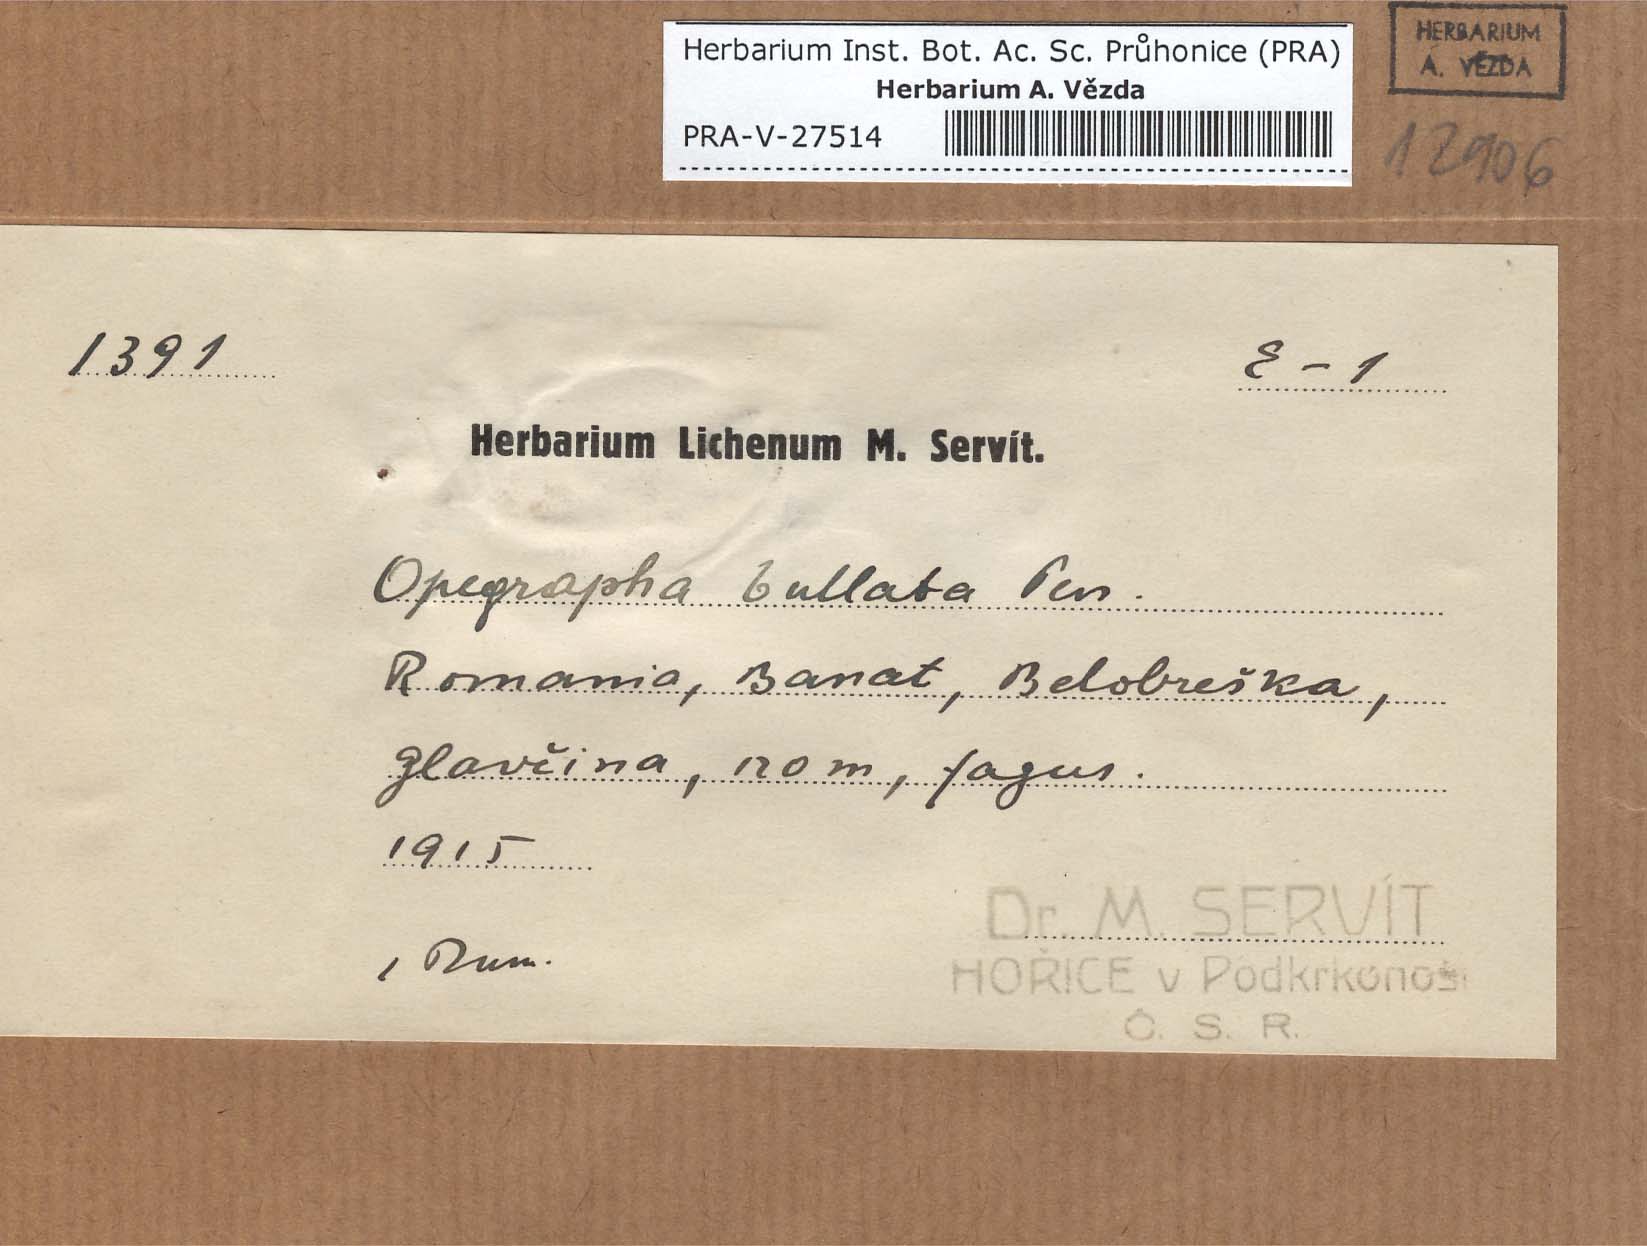 Herbarium Inst. Bot. Ac. Sc. Průhonice (PRA)
Herbarium A. Vězda
PRA-V-27514
HERBARIUM
A. VĚZDA
12906
1391
E - 1
Herbarium Lichenum M. Servít.
Opegrapha bullata Pers.
Romania, Banat, Belobreška,
Glavčina, 120 m, fagus.
1915
, Rum.
Dr. M. SERVÍT
HOŘICE v Podkrkonoší
Č. S. R.